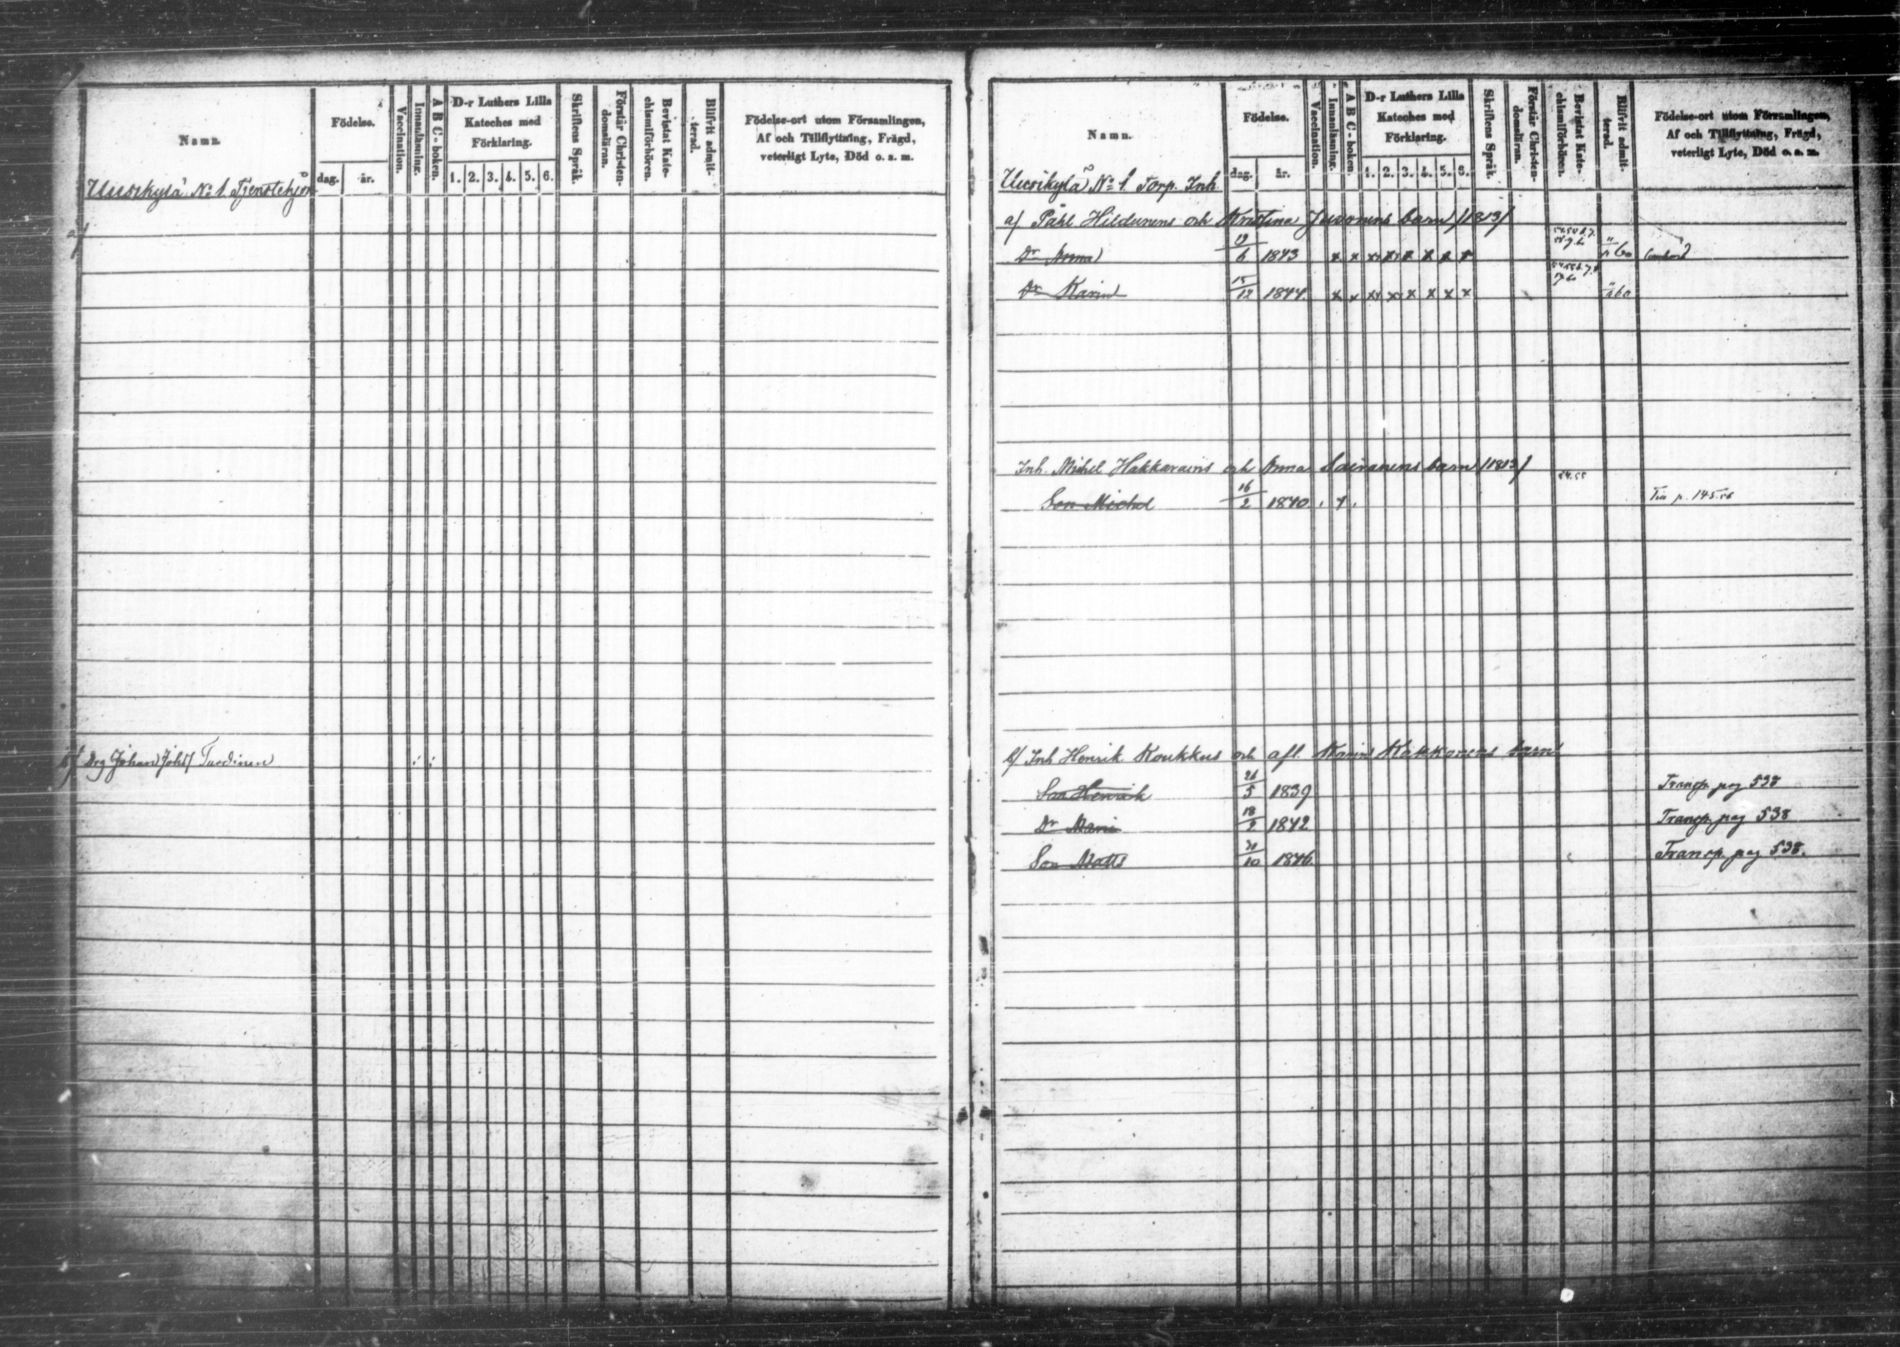 Namn.
Födelse.
dag.
år.
Vaccination.
Innanläsning.
A B C-boken.
D-r Luthers Lilla
Kateches med
Förklaring.
1. 2. 3. 4. 5. 6.
Skriftens Språk.
Förstår Christen-
domsläran.
Bevistat Kate-
chismiförhören.
Blifvit admit-
terad.
Födelse-ort utom Församlingen,
Af och Tillflyttning, Frägd,
veterligt Lyte, Död o. s. m.
Uusikylä No 1 Tjenstehjon
a/
b/ Drg Johan Johsf
Namn.
Födelse.
dag.
år.
Vaccination.
Innanläsning.
A B C-boken.
D-r Luthers Lilla
Kateches med
Förklaring.
1. 2. 3. 4. 5. 6.
Skriftens Språk.
Förstår Christen-
domsläran.
Bevistat Kate-
chismiförhören.
Blifvit admit-
terad.
Födelse-ort utom Församlingen,
Af och Tillflyttning, Frägd,
veterligt Lyte, Död o. s. m.
Uusikylä No 1 Torp. Inh.
a/ Påhl Hildunens och Kristina Juvonens barn /1313/
Dr Anna 19/6 1843 x x xx xx x x x x
Dr Karin 15/12 1844 x x xx xx x x x x
Inh. Michel Hakkarains och Anna barn /1313/ 54.55
Son Michel 16/2 1840 Trp p. 145.56
b/ Inh Henrik Koukkus och afl. Karin Kakkonens barn
Son Henrik 26/5 1839 Transp. pag 538
Dr Maria 18/2 1842 Transp. pag 538
Son Matts 21/10 1846 Transp. pag 538.